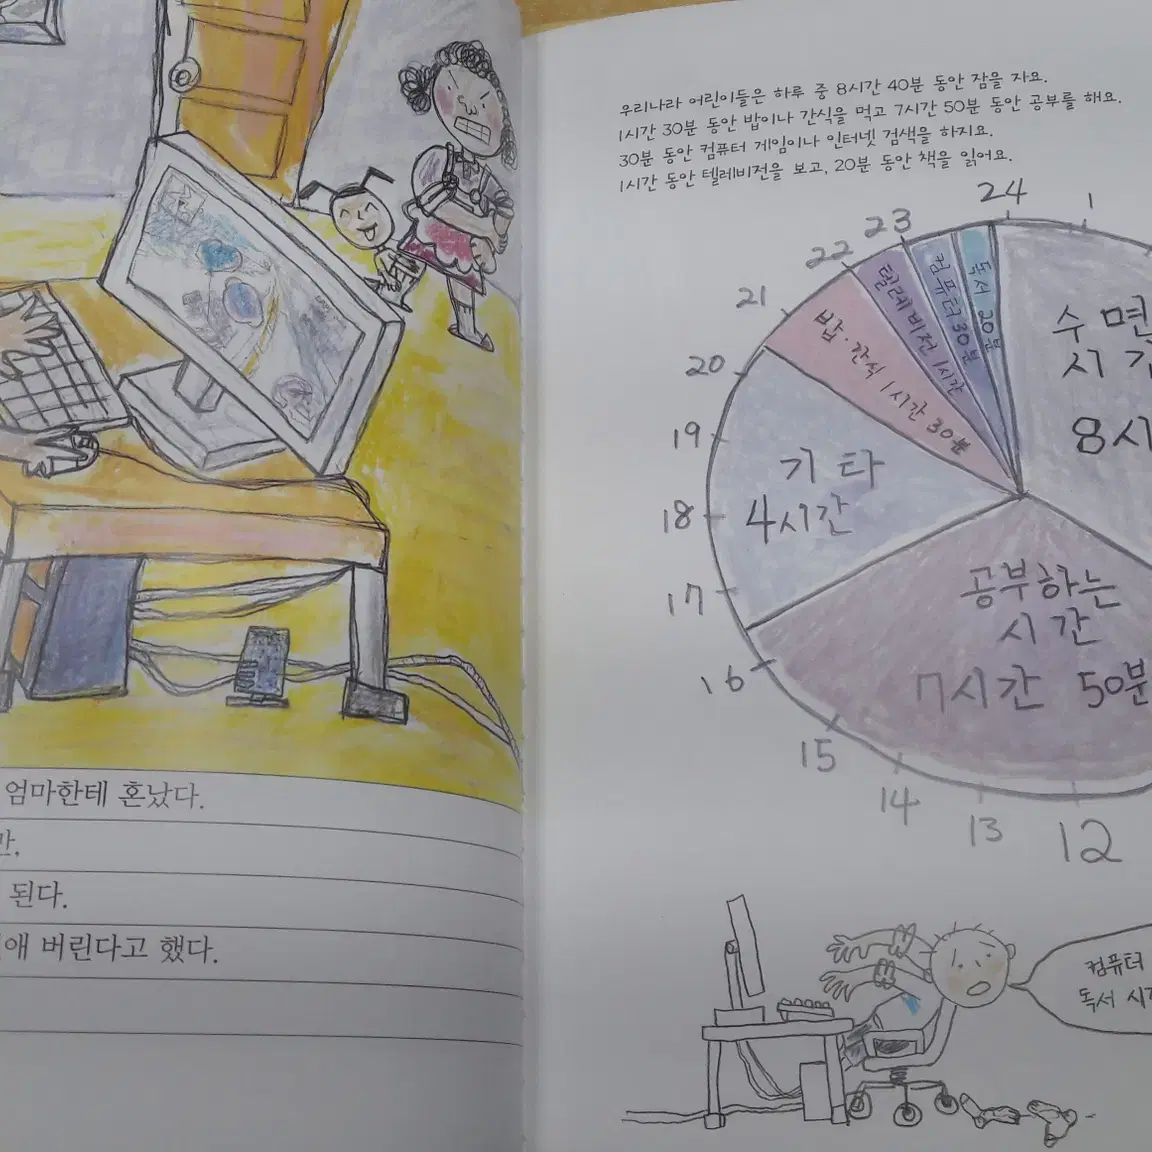 엄마한테 혼났다.
만,
된다.
애 버린다고 했다.
우리나라 어린이들은 하루 중 8시간 40분 동안 잠을 자요.
1시간 30분 동안 밥이나 간식을 먹고 7시간 50분 동안 공부를 해요.
30분 동안 컴퓨터 게임이나 인터넷 검색을 하지요.
1시간 동안 텔레비전을 보고, 20분 동안 책을 읽어요.
24
1
23
22
21
20
19
18
17
16
15
14
13
12
독서 20분
컴퓨터 30분
텔레비전 1시간
밥·간식 1시간 30분
수면
시간
8시
기타
4시간
공부하는
시간
7시간 50분
컴퓨터
독서 시간